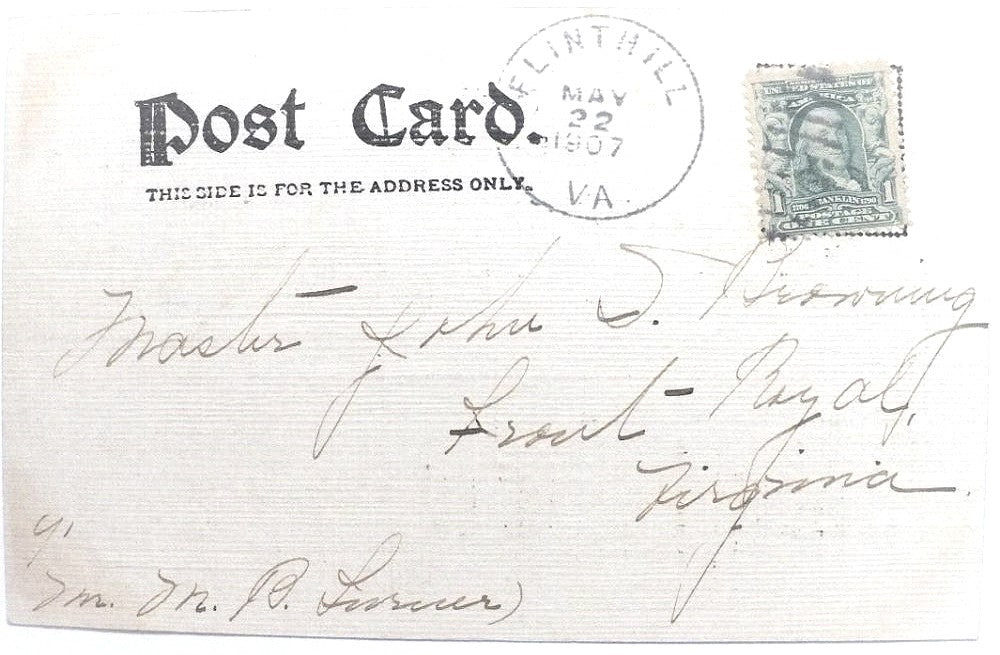 Post Card.
THIS SIDE IS FOR THE ADDRESS ONLY.
FLINTHILL
MAY
22
1907
VA
UNITED STATES OF
AMERICA
1 1706 FRANKLIN 1790 1
POSTAGE
ONE CENT
Master John S. Browning
Front Royal,
Virginia.
M. B. Turner)